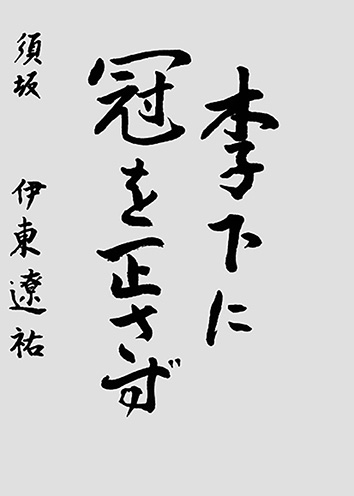 李下に
冠を正さず
須坂 伊東遼祐